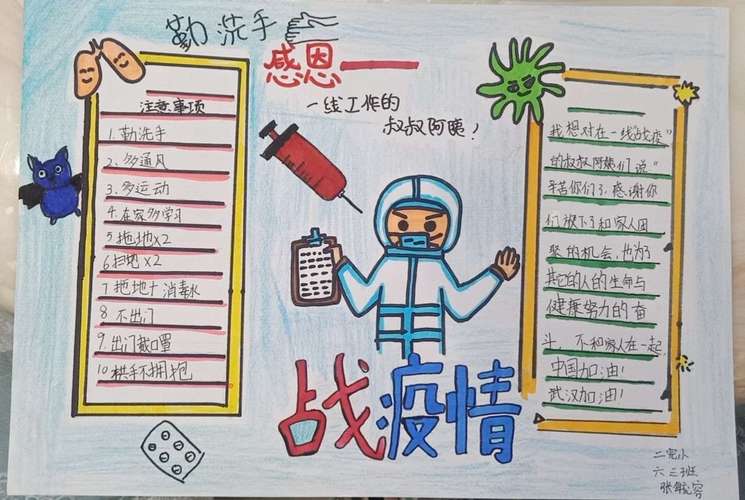 勤洗手
感恩
一线工作的
叔叔阿姨！
注意事项
1.勤洗手
2.多通风
3.多运动
4.在家多学习
5.拖地×2
6.扫地×2
7.拖地+消毒水
8.不出门
9.出门戴口罩
10.拱手不拥抱
我想对在一线“战疫”
的叔叔阿姨们说“
辛苦你们了，感谢你
们放下了和家人团
聚的机会，也为了
其它的人的生命与
健康努力的奋
斗，不和家人在一起，
中国加油！
武汉加油！
战疫情
二完小
六三班